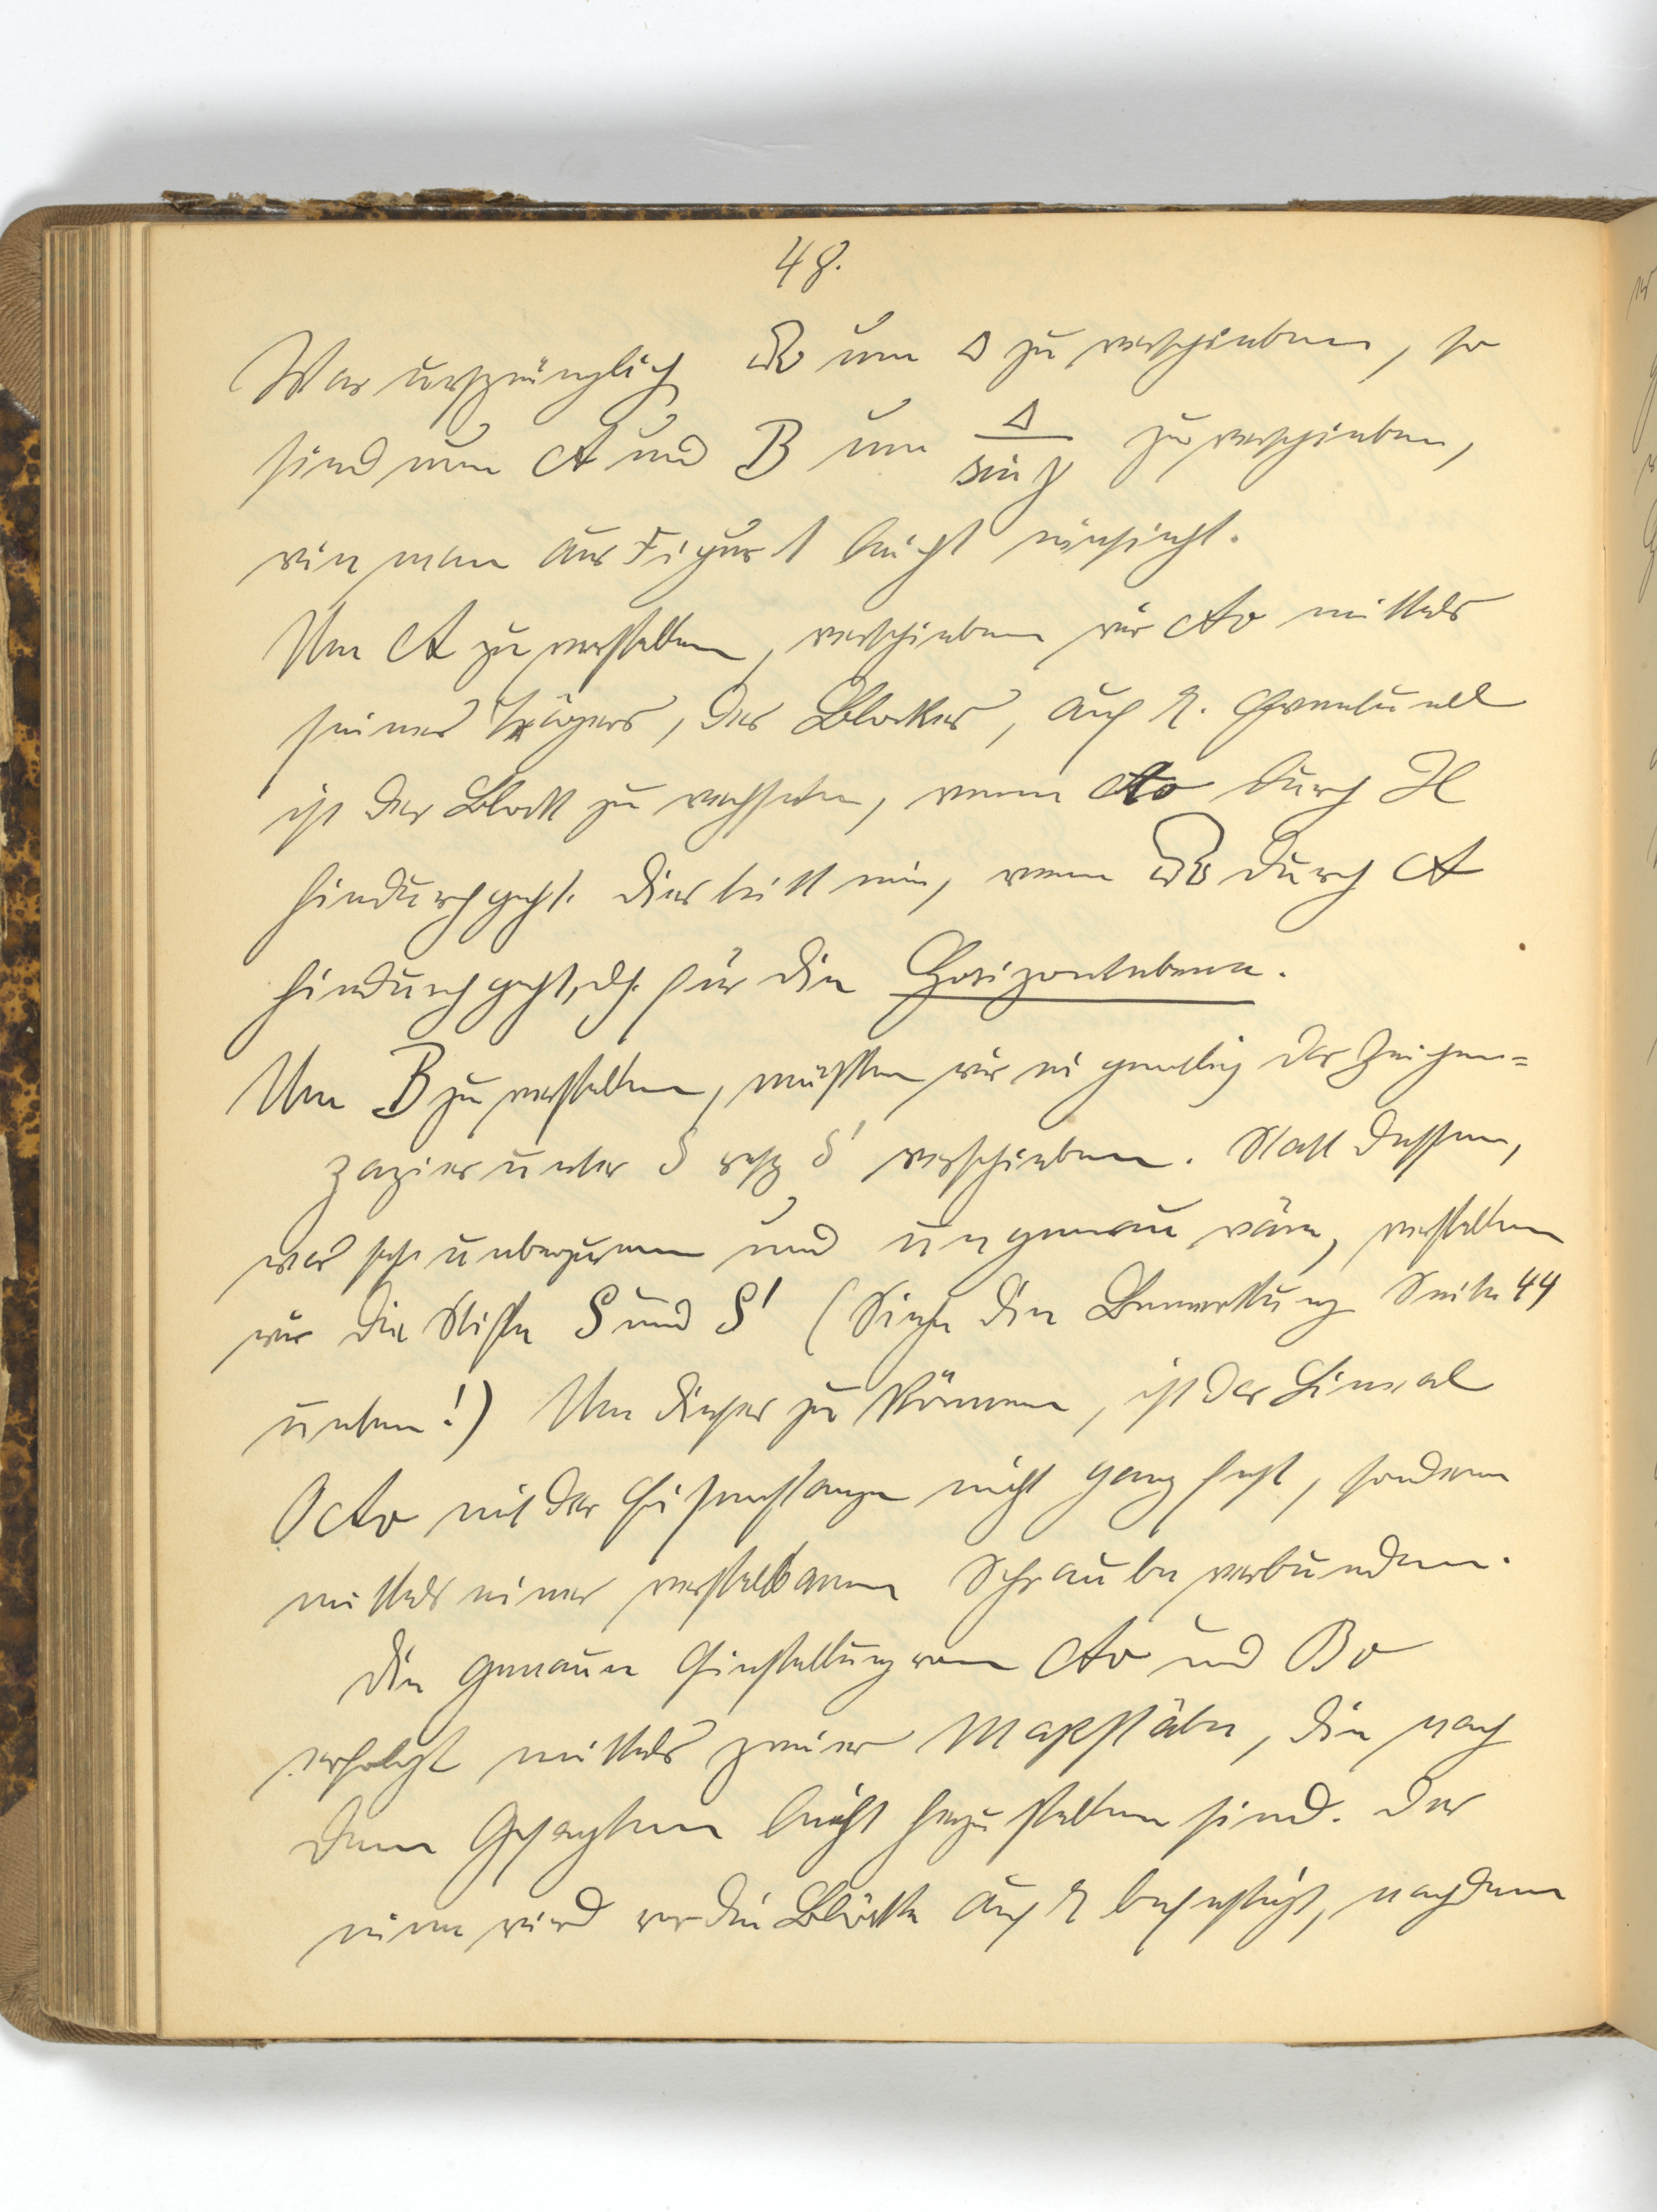 48.
War ursprünglich 𝔅 um Δ zu verschieben, so
sind nun A und B um Δ/sin γ zu verschieben,
wie man aus Figur 1 leicht einsieht.
Um A zu verstellen, verschieben wir A₀ mittels
seines Trägers, des Blockes, auf R. Eventuell
ist der Block zu wechseln, wenn A₀ durch H
hindurchgeht. Dies tritt ein, wenn 𝔅 durch A
hindurchgeht, dh. für die Horizontebene.
Um B zu verstellen, müßten wir eigentlich das Zeichen=
papier unter S resp S' verschieben. Statt dessen,
was sehr unbequem und ungenau wäre, verstellen
wir die Stifte S und S' (Siehe die Bemerkung Seite 44
unten!) Um dieses zu können, ist das Lineal
OA₀ mit der Eisenstange nicht ganz fest, sondern
mittels einer verstellbaren Schraube verbunden.
Die genaue Einstellung von A₀ und B₀
erfolgt mittels zweier Maßstäbe, die nach
dem Gesagten leicht herzustellen sind. Der
eine wird vor die Blöcke auf R befestigt, nachdem